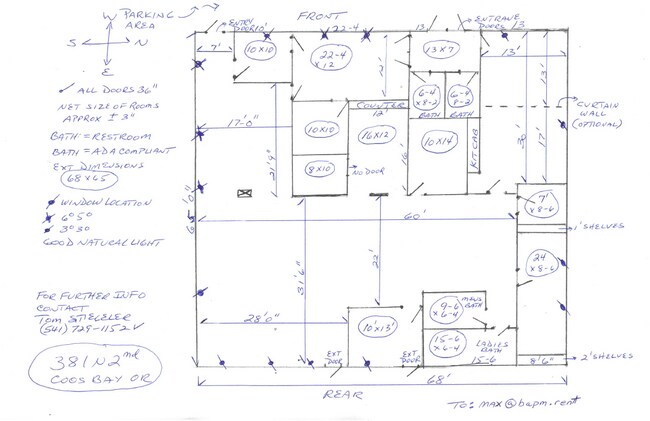 W PARKING
AREA
S N
E
FRONT
ENTRY
DOOR
10'
22-4
13
ENTRANCE
DOORS
13
7'
10X10
22-4
X12
13X7
13'
✓ ALL DOORS 36"
NET SIZE OF ROOMS
APPROX ± 3"
BATH = RESTROOM
BATH = ADA COMPLIANT
EXT DIMENSIONS
68X65
WINDOW LOCATION
6⁰5⁰
3⁰3⁰
GOOD NATURAL LIGHT
12'
13'
6-4
X8-2
BATH
6-4
8-2
BATH
COUNTER
12'
CURTAIN
WALL
(OPTIONAL)
17'-0"
10X10
16X12
10X14
KIT CAB
30'
17'
21'9"
8X10
NO DOOR
16'
65'0"
60'
7'
X8-6
1' SHELVES
31'6"
22'
24
X8-6
FOR FURTHER INFO
CONTACT
(541) 728-1152
28'0"
10'X13'
9-6
X6-4
MENS
BATH
15-6
X6-4
LADIES
BATH
15-6
EXT
DOOR
EXT
DOOR
8'6"
2' SHELVES
381 N 2nd
COOS BAY OR
68'
REAR
TO: max@bapm.rent